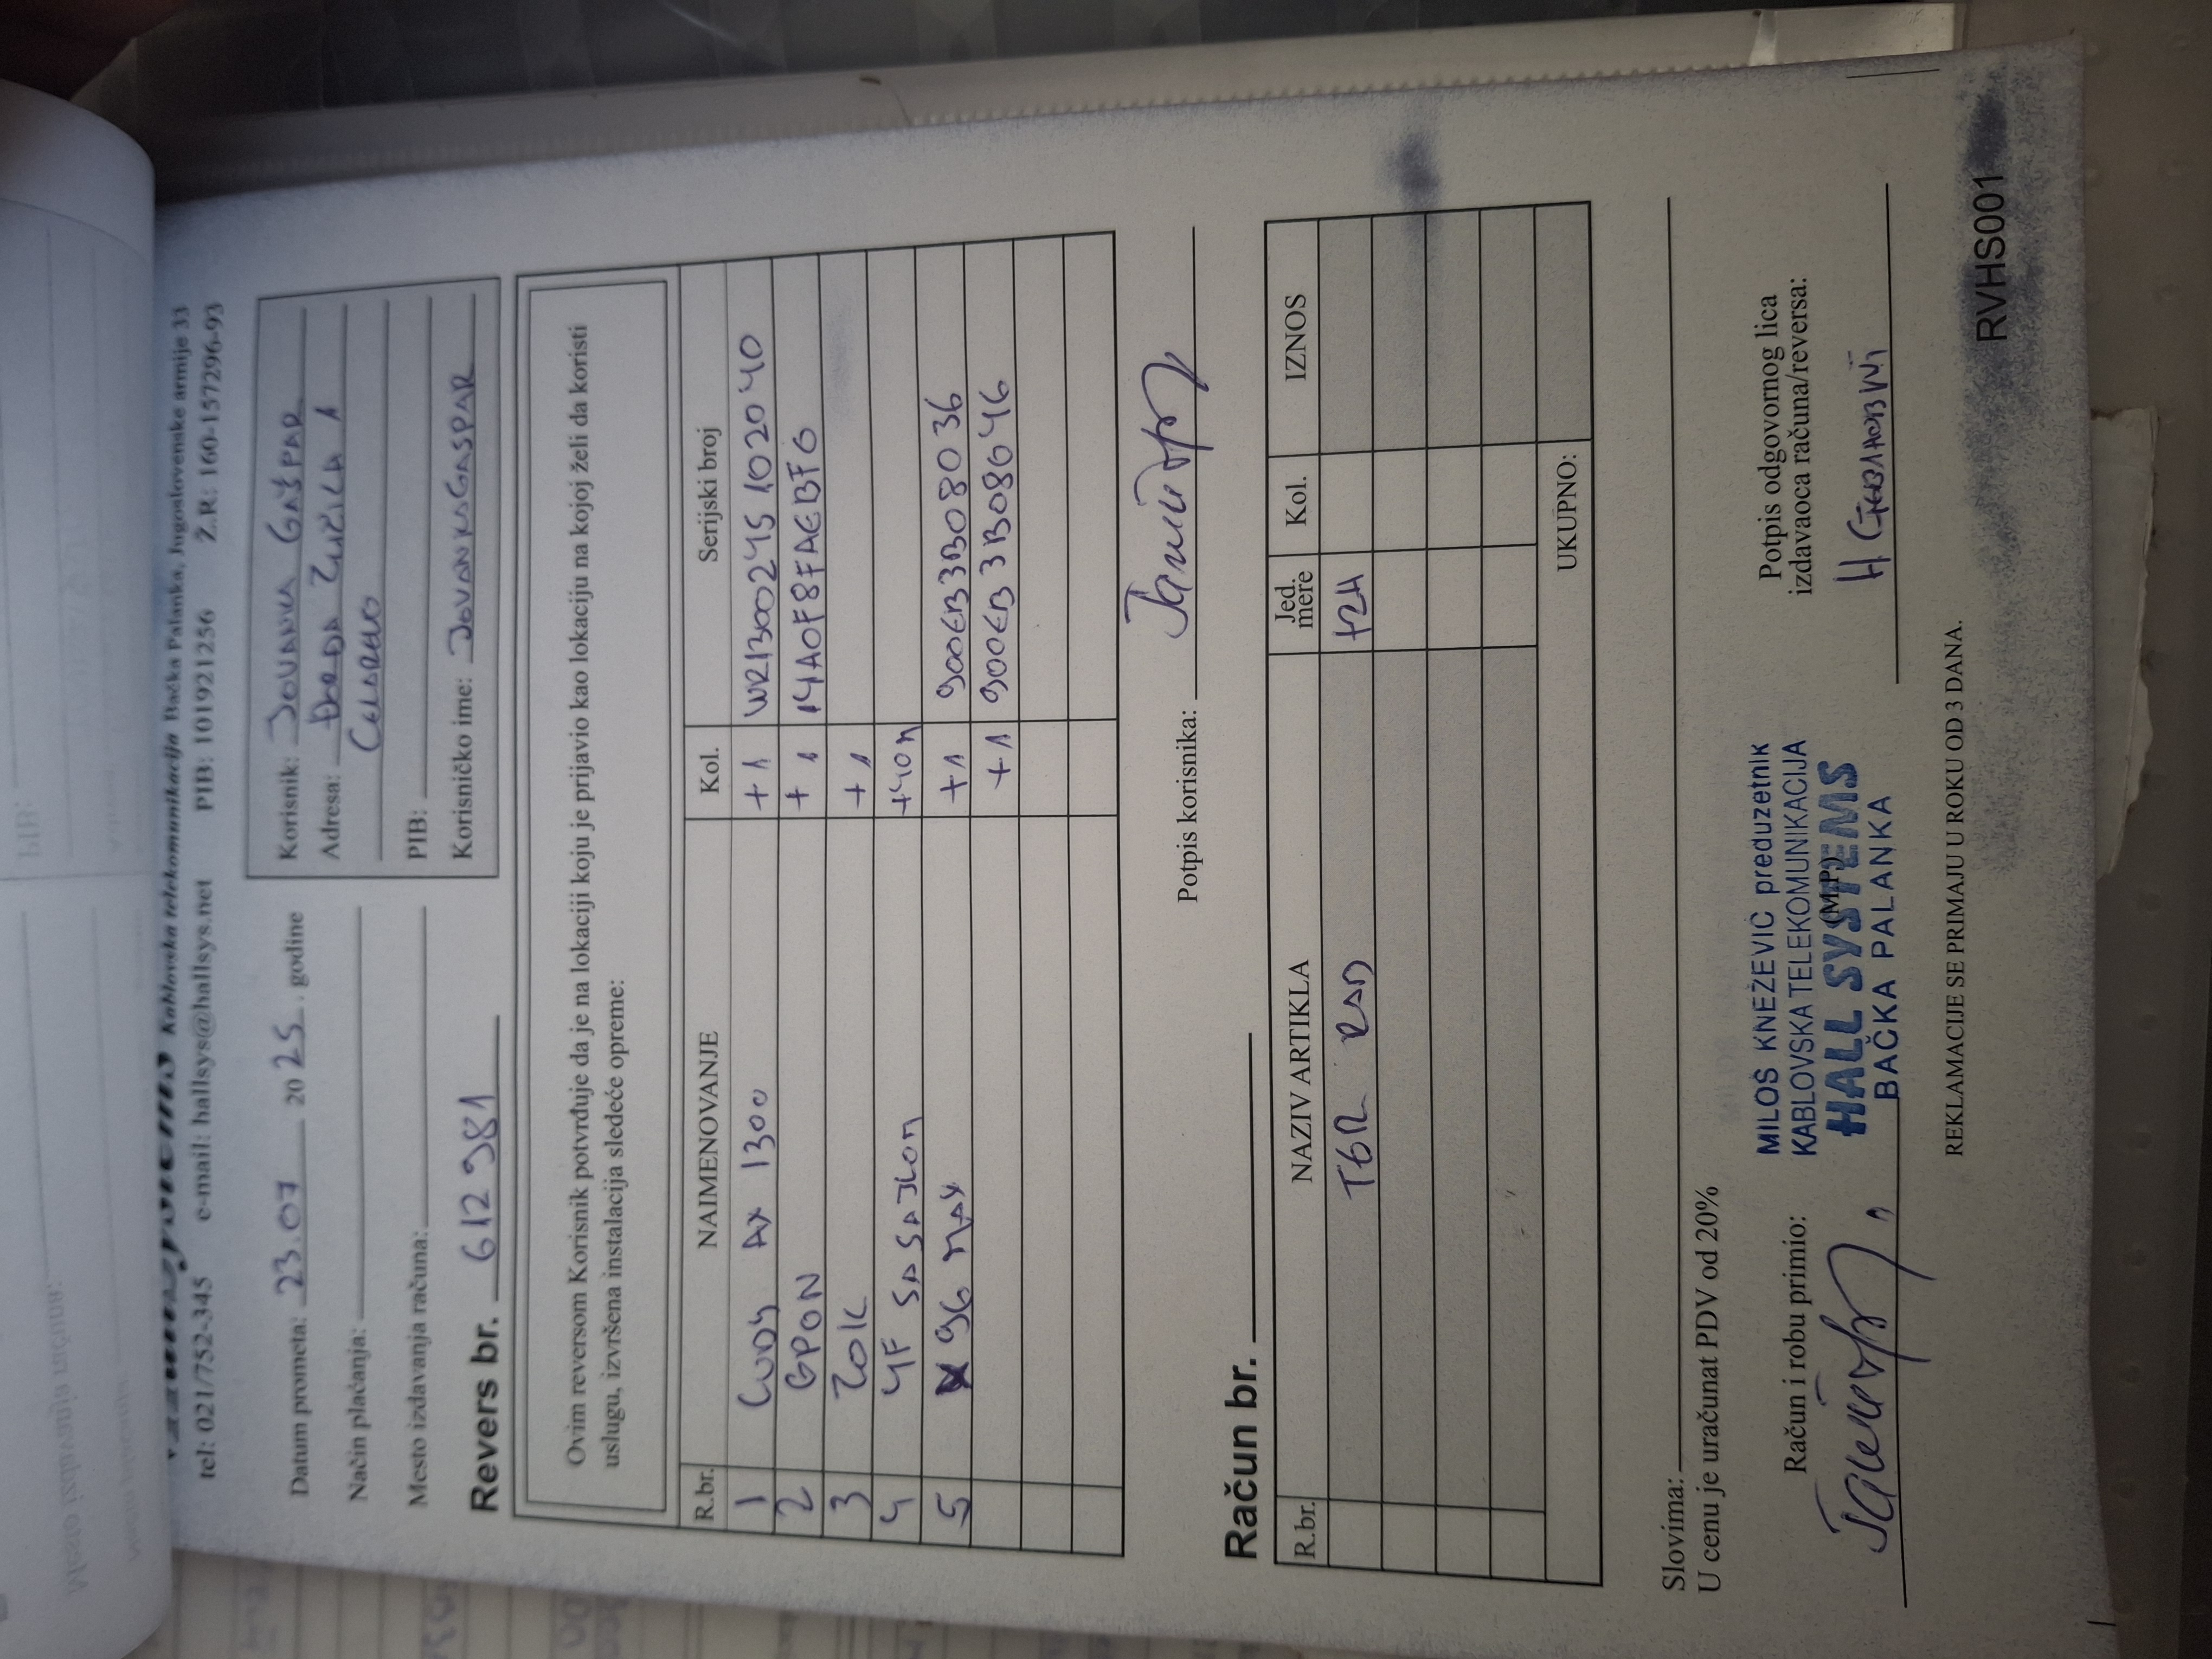 Kablovska telekomunikacija Bačka Palanka, Jugoslovenske armije 33
tel: 021/752-345 e-mail: hallsys@hallsys.net PIB: 101921256 Ž.R: 160-157296-93
Datum prometa: 23.07 2025. godine
Način plaćanja:
Mesto izdavanja računa:
Korisnik: JOVANKA GAŠPAR
Adresa: ĐORĐA ZLIČIĆA 1
ČELAREVO
PIB:
Korisničko ime: JOVANKAGASPAR
Revers br. 612981
Ovim reversom Korisnik potvrđuje da je na lokaciji koju je prijavio kao lokaciju na kojoj želi da koristi
uslugu, izvršena instalacija sledeće opreme:
R.br. NAIMENOVANJE Kol. Serijski broj
1 CUDY AX 1300 +1 WR1300245102040
2 GPON +1 14A0F8FAEBF6
3 ZOK +1
4 4F SA SAJLOM +40m
5 96 MAX +1 900EB3B08036
+1 900EB3B08646
Potpis korisnika:
Račun br.
R.br. NAZIV ARTIKLA Jed. mere Kol. IZNOS
RAD
UKUPNO:
Slovima:
U cenu je uračunat PDV od 20%
Račun i robu primio:
MILOŠ KNEŽEVIĆ preduzetnik
KABLOVSKA TELEKOMUNIKACIJA
HALL SYSTEMS
(M.P.)
BAČKA PALANKA
Potpis odgovornog lica
izdavaoca računa/reversa:
REKLAMACIJE SE PRIMAJU U ROKU OD 3 DANA.
RVHS001